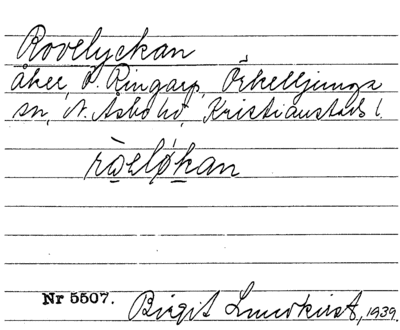 Rovelyckan
åker, Ö. Ringarp, Örkelljunga
sn, N. Åsbo hd, Kristianstads l.
ròelǿkan
Nr 5507.
Birgit Lundkvist, 1939.